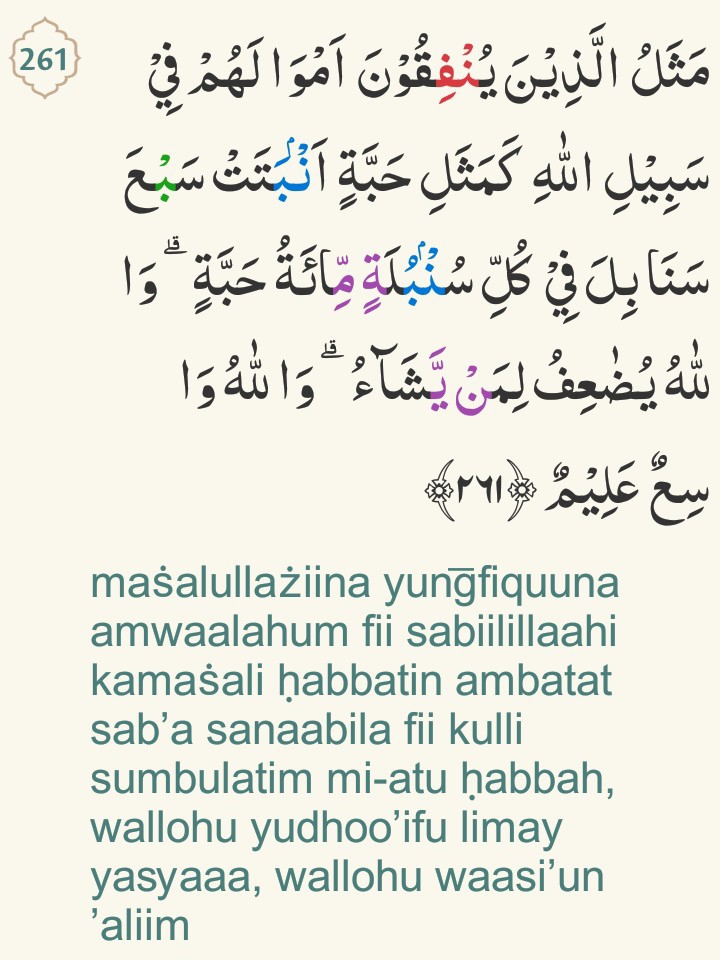 261
مَثَلُ الَّذِيْنَ يُنْفِقُوْنَ اَمْوَا لَهُمْ فِيْ
سَبِيْلِ اللّٰهِ كَمَثَلِ حَبَّةٍ اَنْۢبَتَتْ سَبْعَ
سَنَا بِلَ فِيْ كُلِّ سُنْۢبُلَةٍ مِّائَةُ حَبَّةٍ ۗ وَا
للّٰهُ يُضٰعِفُ لِمَنْ يَّشَآءُ ۗ وَا للّٰهُ وَا
سِعٌ عَلِيْمٌ ﴿٢٦١﴾
maṡalullażiina yung̅fiquuna
amwaalahum fii sabiilillaahi
kamaṡali ḥabbatin ambatat
sab’a sanaabila fii kulli
sumbulatim mi-atu ḥabbah,
wallohu yudhoo’ifu limay
yasyaaa, wallohu waasi’un
’aliim